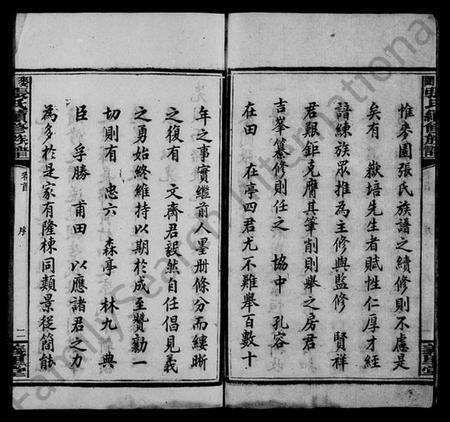 惟來圃張氏族譜之續修則不慮是
矣有 嶽培先生者賦性仁厚才經
諳練族眾推為主修與監修 賢祥
君艱鉅克膺其筆削則舉之房君
吉峯纂修則任之 協中 孔容
在田 在亭四君尤不難舉百數十
年之事實繼前人墨册條分而縷晰
之復有 文齊君毅然自任倡見義
之勇始終維持以期於成至贊勷一
切則有 忠六 森亭 林九 典
臣 孚勝 甫田 以應諸君之力
為多於是家有隆棟同類景從簡能
張氏續修族譜
卷首
序
二
FamilySearch International